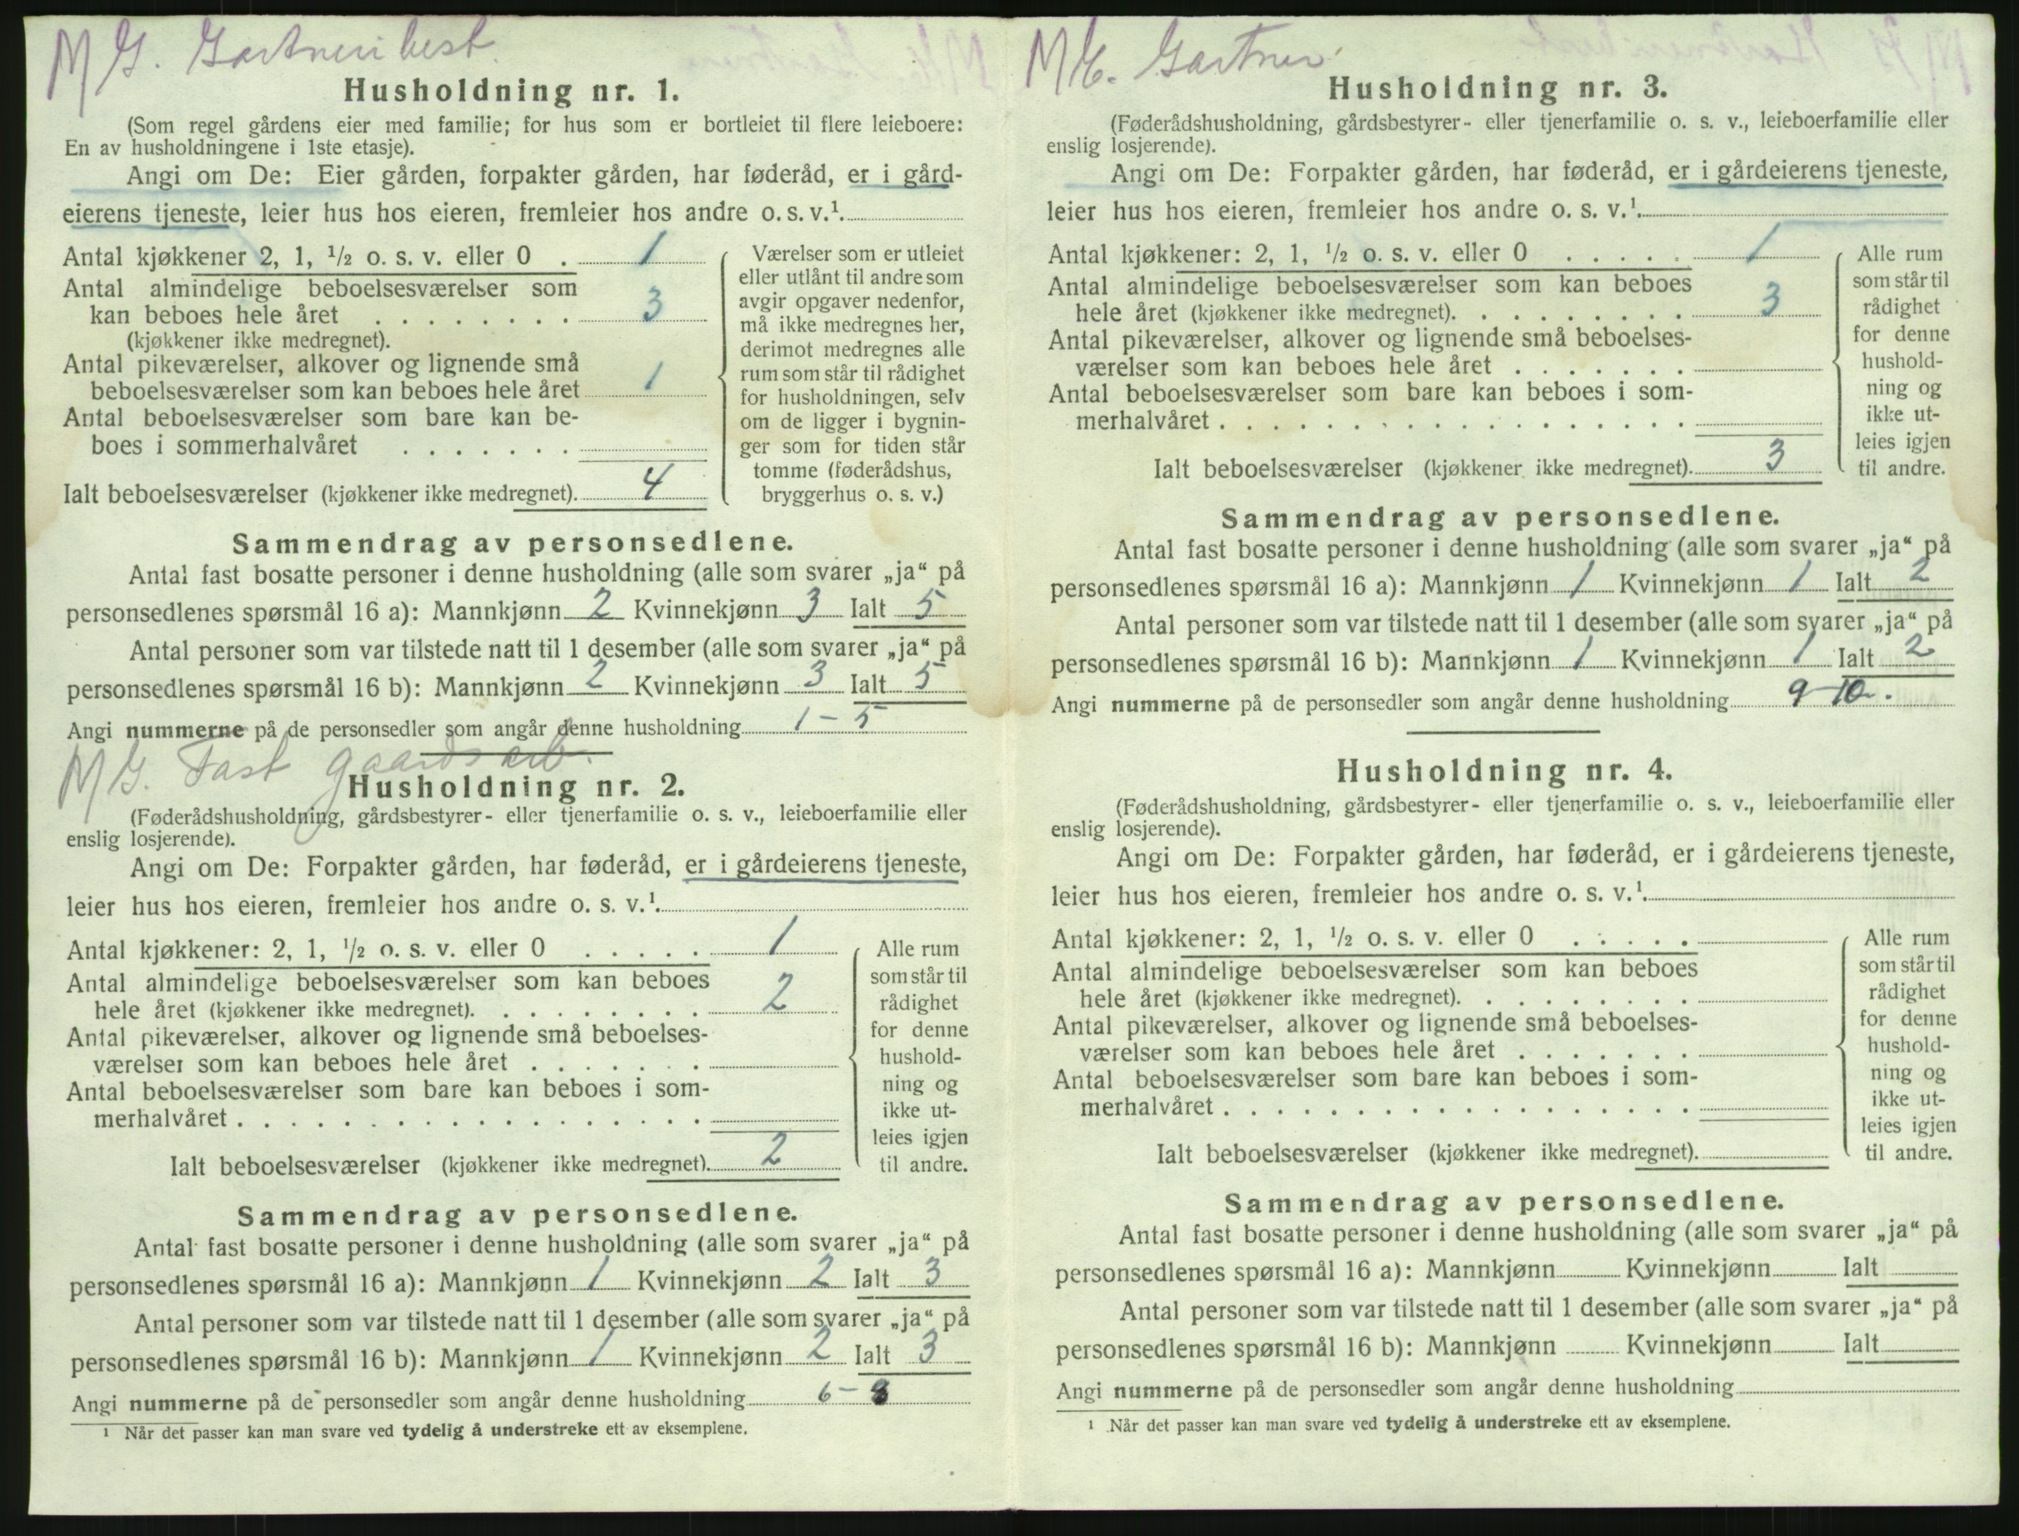 M G. Gartneribest.
Husholdning nr. 1.
(Som regel gårdens eier med familie; for hus som er bortleiet til flere leieboere:
En av husholdningene i 1ste etasje).
Angi om De: Eier gården, forpakter gården, har føderåd, er i gård-
eierens tjeneste, leier hus hos eieren, fremleier hos andre o. s. v.¹.
Antal kjøkkener 2, 1, ½ o. s. v. eller 0 . 1
Antal almindelige beboelsesværelser som
kan beboes hele året . . . . . . . . 3
(kjøkkener ikke medregnet).
Antal pikeværelser, alkover og lignende små
beboelsesværelser som kan beboes hele året 1
Antal beboelsesværelser som bare kan be-
boes i sommerhalvåret . . . . . . .
Ialt beboelsesværelser (kjøkkener ikke medregnet). 4
Værelser som er utleiet
eller utlånt til andre som
avgir opgaver nedenfor,
må ikke medregnes her,
derimot medregnes alle
rum som står til rådighet
for husholdningen, selv
om de ligger i bygnin-
ger som for tiden står
tomme (føderådshus,
bryggerhus o. s. v.)
Sammendrag av personsedlene.
Antal fast bosatte personer i denne husholdning (alle som svarer „ja“ på
personsedlenes spørsmål 16 a): Mannkjønn 2 Kvinnekjønn 3 Ialt 5
Antal personer som var tilstede natt til 1 desember (alle som svarer „ja“ på
personsedlenes spørsmål 16 b): Mannkjønn 2 Kvinnekjønn 3 Ialt 5
Angi nummerne på de personsedler som angår denne husholdning 1 - 5
M G. Fast gaardsarb.
Husholdning nr. 2.
(Føderådshusholdning, gårdsbestyrer- eller tjenerfamilie o. s. v., leieboerfamilie eller
enslig losjerende).
Angi om De: Forpakter gården, har føderåd, er i gårdeierens tjeneste,
leier hus hos eieren, fremleier hos andre o. s. v.¹.
Antal kjøkkener: 2, 1, ½ o. s. v. eller 0 . . . . . 1
Antal almindelige beboelsesværelser som kan beboes
hele året (kjøkkener ikke medregnet). . . . . . . . . 2
Antal pikeværelser, alkover og lignende små beboelses-
værelser som kan beboes hele året . . . . . . .
Antal beboelsesværelser som bare kan beboes i som-
merhalvåret . . . . . . . . . . . . . . . . . .
Ialt beboelsesværelser (kjøkkener ikke medregnet). 2
Alle rum
som står til
rådighet
for denne
hushold-
ning og
ikke ut-
leies igjen
til andre.
Sammendrag av personsedlene.
Antal fast bosatte personer i denne husholdning (alle som svarer „ja“ på
personsedlenes spørsmål 16 a): Mannkjønn 1 Kvinnekjønn 2 Ialt 3
Antal personer som var tilstede natt til 1 desember (alle som svarer „ja“ på
personsedlenes spørsmål 16 b): Mannkjønn 1 Kvinnekjønn 2 Ialt 3
Angi nummerne på de personsedler som angår denne husholdning 6 - 8
¹ Når det passer kan man svare ved tydelig å understreke ett av eksemplene.
M G. Gartner
Husholdning nr. 3.
(Føderådshusholdning, gårdsbestyrer- eller tjenerfamilie o. s. v., leieboerfamilie eller
enslig losjerende).
Angi om De: Forpakter gården, har føderåd, er i gårdeierens tjeneste,
leier hus hos eieren, fremleier hos andre o. s. v.¹.
Antal kjøkkener: 2, 1, ½ o. s. v. eller 0 . . . . . 1
Antal almindelige beboelsesværelser som kan beboes
hele året (kjøkkener ikke medregnet). . . . . . . . . 3
Antal pikeværelser, alkover og lignende små beboelses-
værelser som kan beboes hele året . . . . . . .
Antal beboelsesværelser som bare kan beboes i som-
merhalvåret . . . . . . . . . . . . . . . . . .
Ialt beboelsesværelser (kjøkkener ikke medregnet). 3
Alle rum
som står til
rådighet
for denne
hushold-
ning og
ikke ut-
leies igjen
til andre.
Sammendrag av personsedlene.
Antal fast bosatte personer i denne husholdning (alle som svarer „ja“ på
personsedlenes spørsmål 16 a): Mannkjønn 1 Kvinnekjønn 1 Ialt 2
Antal personer som var tilstede natt til 1 desember (alle som svarer „ja“ på
personsedlenes spørsmål 16 b): Mannkjønn 1 Kvinnekjønn 1 Ialt 2
Angi nummerne på de personsedler som angår denne husholdning 9-10.
Husholdning nr. 4.
(Føderådshusholdning, gårdsbestyrer- eller tjenerfamilie o. s. v., leieboerfamilie eller
enslig losjerende).
Angi om De: Forpakter gården, har føderåd, er i gårdeierens tjeneste,
leier hus hos eieren, fremleier hos andre o. s. v.¹.
Antal kjøkkener: 2, 1, ½ o. s. v. eller 0 . . . . .
Antal almindelige beboelsesværelser som kan beboes
hele året (kjøkkener ikke medregnet). . . . . . . . .
Antal pikeværelser, alkover og lignende små beboelses-
værelser som kan beboes hele året . . . . . . .
Antal beboelsesværelser som bare kan beboes i som-
merhalvåret . . . . . . . . . . . . . . . . . .
Ialt beboelsesværelser (kjøkkener ikke medregnet).
Alle rum
som står til
rådighet
for denne
hushold-
ning og
ikke ut-
leies igjen
til andre.
Sammendrag av personsedlene.
Antal fast bosatte personer i denne husholdning (alle som svarer „ja“ på
personsedlenes spørsmål 16 a): Mannkjønn Kvinnekjønn Ialt
Antal personer som var tilstede natt til 1 desember (alle som svarer „ja“ på
personsedlenes spørsmål 16 b): Mannkjønn Kvinnekjønn Ialt
Angi nummerne på de personsedler som angår denne husholdning
¹ Når det passer kan man svare ved tydelig å understreke ett av eksemplene.